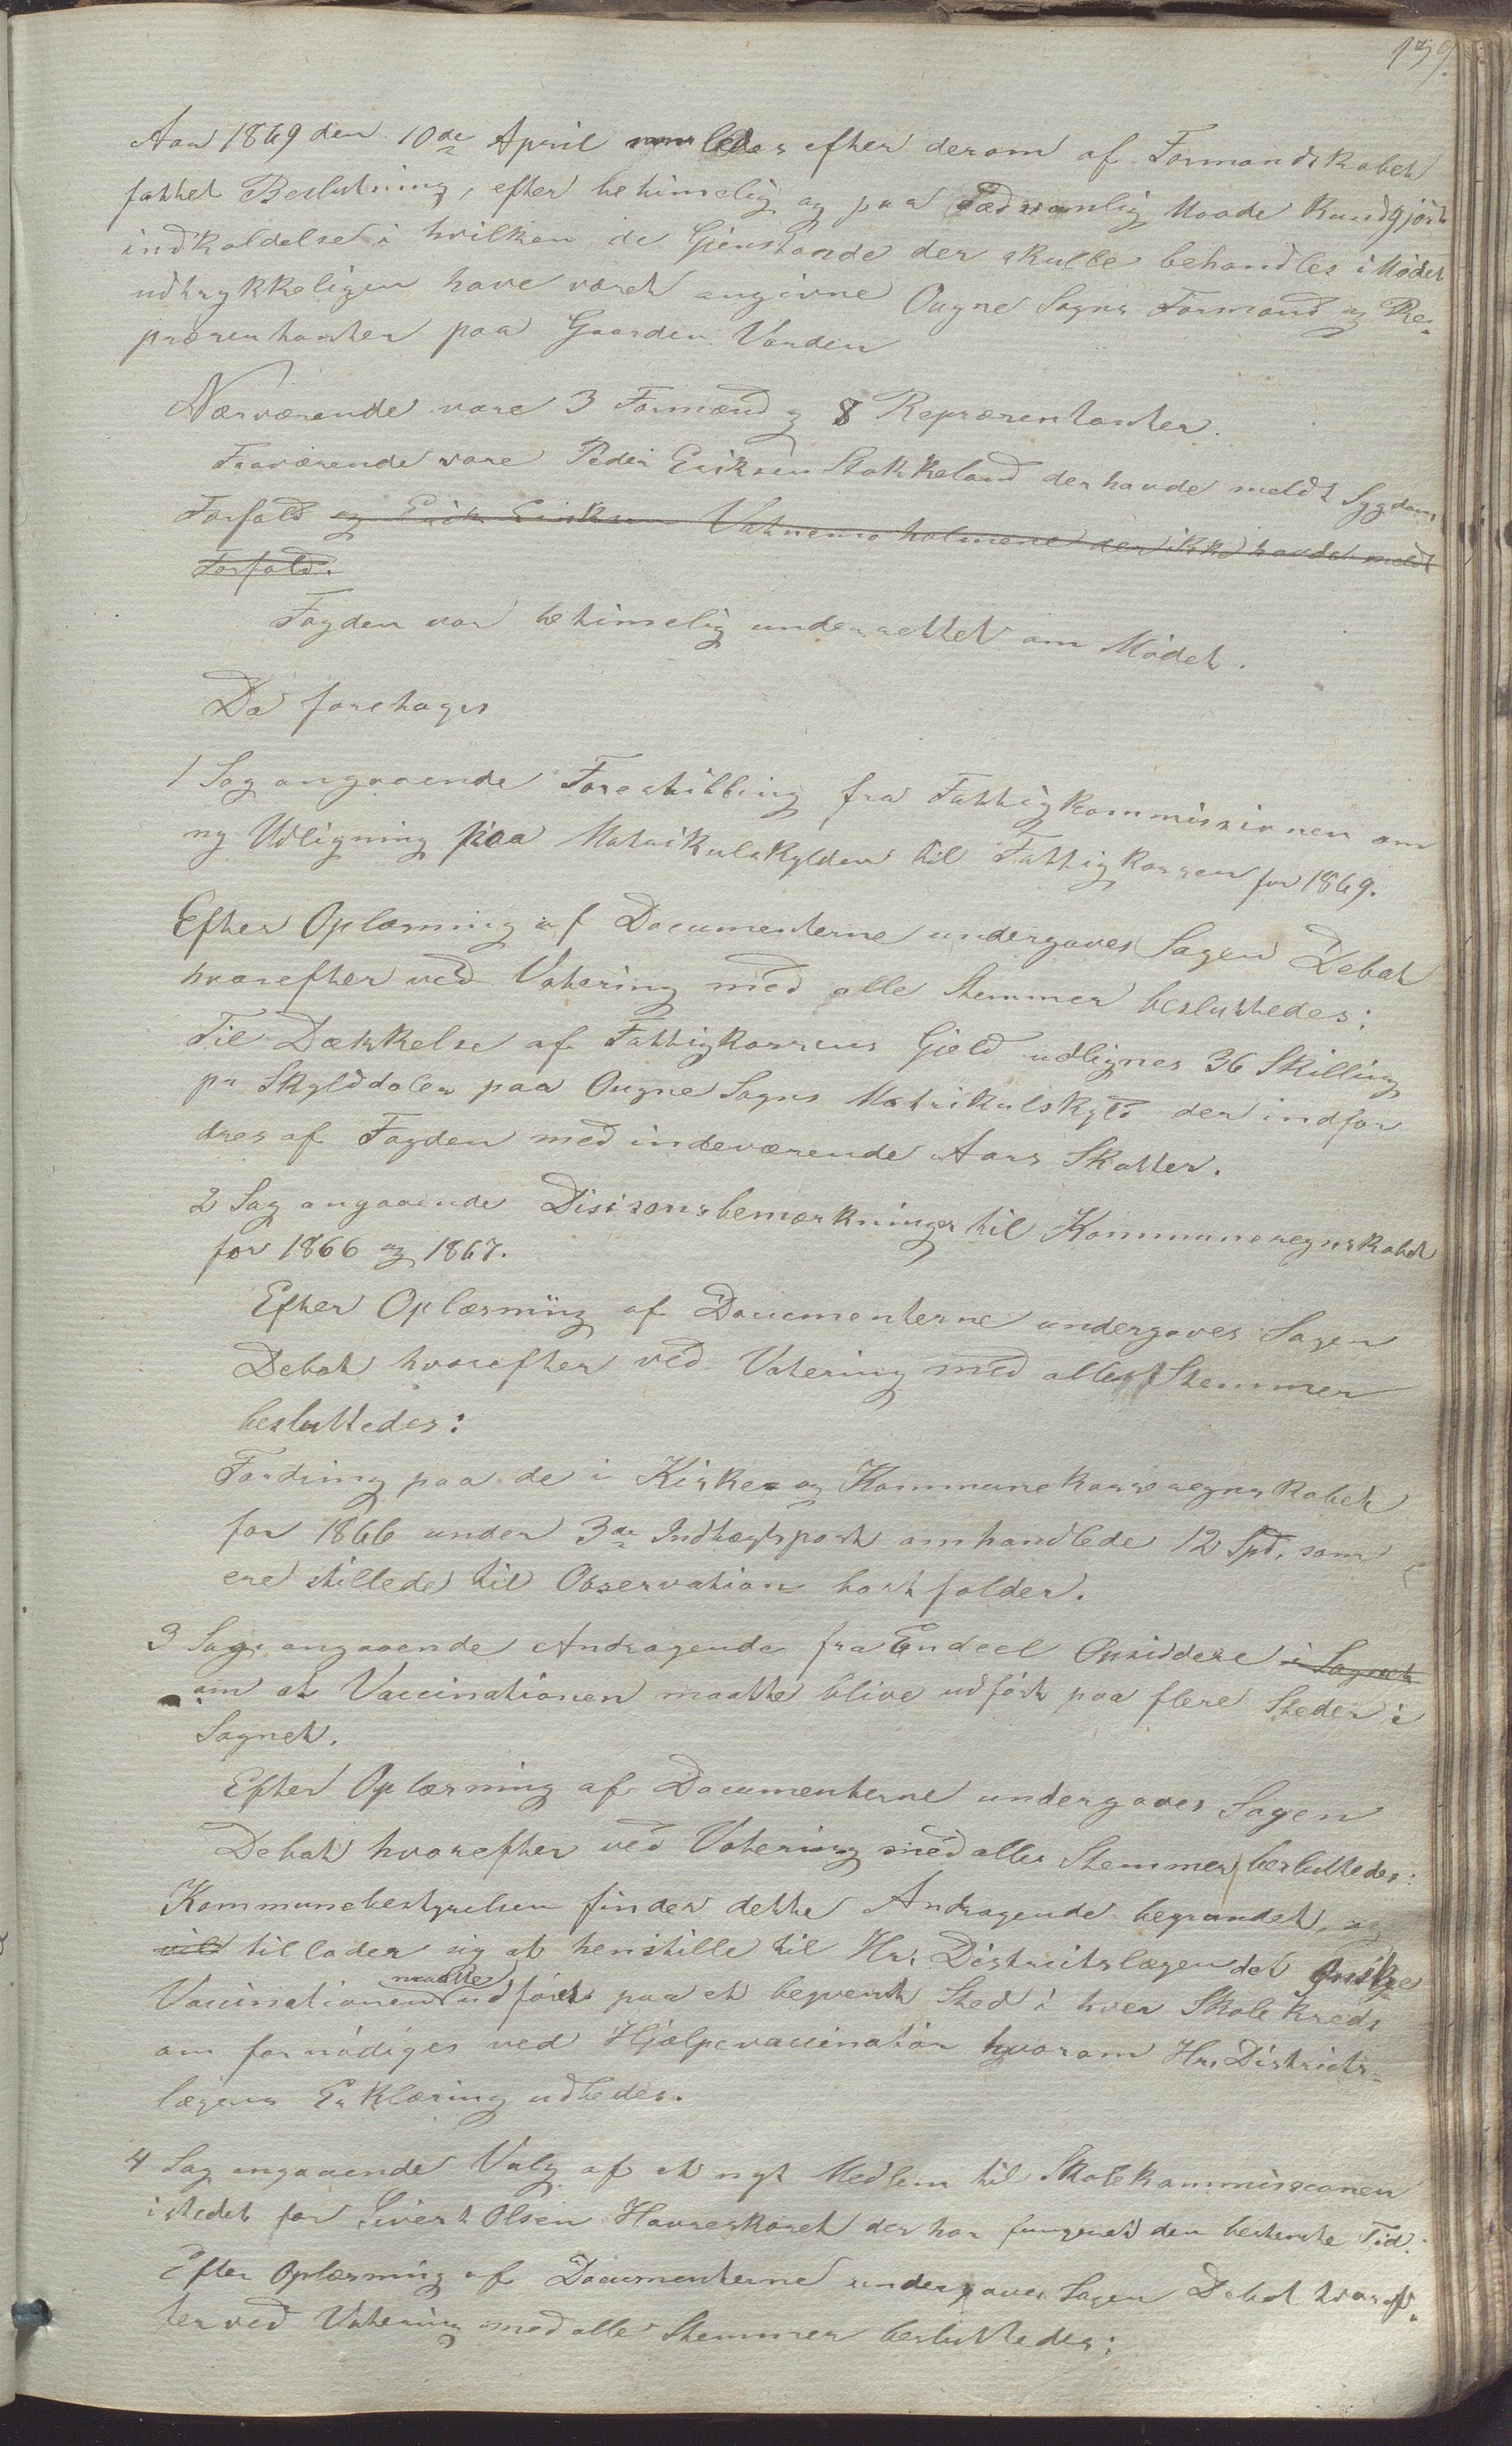 179.
Aar 1869 den 10de April samledes efter derom af Formandskabet
fattet Beslutning, efter betimelig og paa sædvanlig Maade Kundgjort
indkaldelse i hvilken de Gjenstande der skulle behandles i Mødet
udtrykkeligen have været angivne Ougne Sogns Formænd og Re-
præsentanter paa Gaarden Varden
Nærværende vare 3 Formænd og 8 Repræsentanter.
Fraværende vare Peder Eriksen Stokkeland der havde meldt Sygdoms
Forfald og Erik Eriksen Vatnemo holmene der ikke havde meldt
Forfald.
Fogden var betimelig underrettet om Mødet.
Da foretoges
1 Sag angaaende Forestilling fra Fattigkommissionen om
ny Udligning paa Matrikulskylden til Fattigkassen for 1869.
Efter Oplæsning af Documenterne undergaves Sagen Debat
hvorefter ved Votering med alle Stemmer besluttedes:
Til Dækkelse af Fattigkassens Gjeld udlignes 36 Skilling
pr Skylddaler paa Ougne Sogns Matrikulskyld der indfor
dres af Fogden med indeværende Aars Skatter.
2 Sag angaaende Disisonsbemærkninger til Kommuneregnskabet
for 1866 og 1867.
Efter Oplæsning af Documenterne undergaves Sagen
Debat hvorefter ved Votering med alle Stemmer
besluttedes:
Fordring paa de i Kirke- og Kommunekasseregnskabet
for 1866 under 3die Indtægtspost omhandlede 12 Spd. som
ere stillede til Observation bortfalder.
3 Sag angaaende Andragende fra Endeel Opsiddere i Sognet
om at Vaccinationen maatte blive udført paa flere Steder i
Sognet.
Efter Oplæsning af Documenterne undergaves Sagen
Debat hvorefter ved Votering med alle Stemmer besluttedes:
Kommunebestyrelsen finder dette Andragende begrundet, og
vil tillader sig at henstille til Hr. Districtslægen det Ønske
Vaccinationen maatte udføres paa et beqvemt Sted i hver Skolekreds
om fornødiges ved Hjælpevaccinatør hvorom Hr. Districts-
lægens Erklæring udbedes.
4 Sag angaaende Valg af et nyt Medlem til Skolekommissionen
istedet for Sivert Olsen Hovreskoret der har fungeret den bestemte Tid.
Efter Oplæsning af Documenterne undergaves Sagen Debat hvoref-
ter ved Votering med alle Stemmer besluttedes: